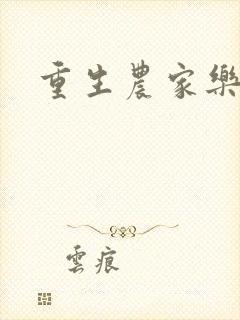 重生農家樂
雲痕